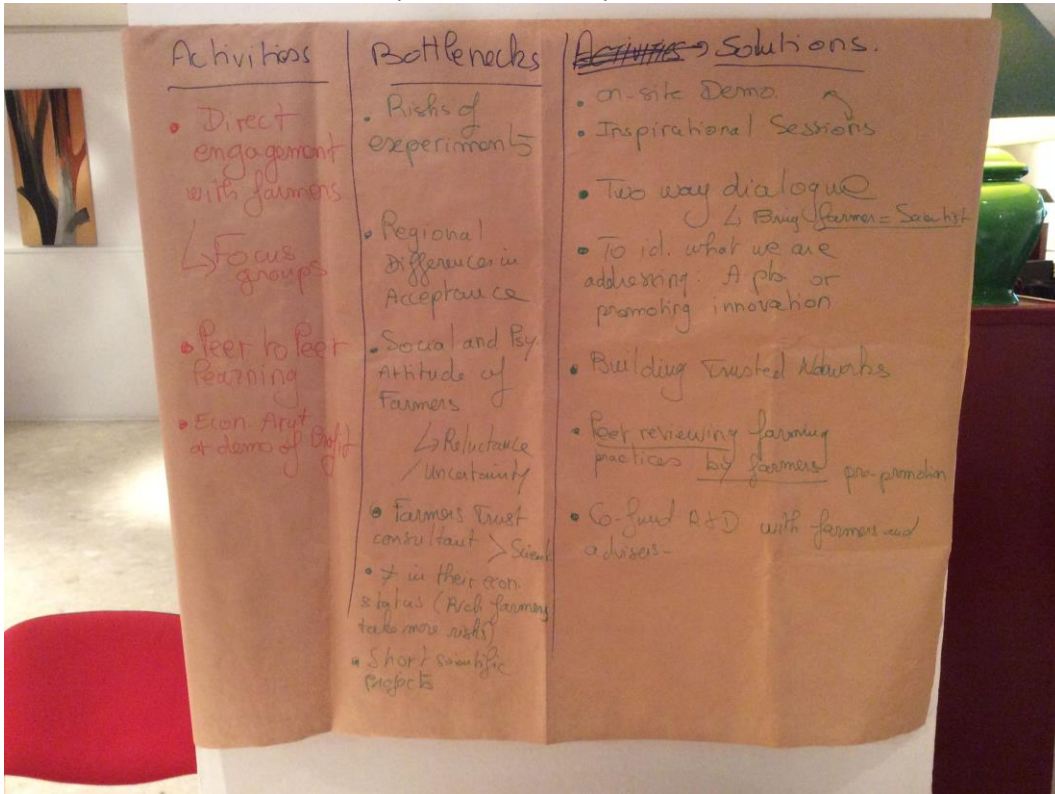 Activities
• Direct
engagement
with farmers
↳ Focus
groups
• Peer to Peer
learning
• Econ Argt
or demo of Profit
Bottlenecks
• Risks of
experiments
• Regional
Differences in
Acceptance
• Social and Psy.
Attitude of
Farmers
↳ Reluctance
/ Uncertainty
• Farmers Trust
consultant > Scient
• ≠ in their econ.
status (Rich farmers
take more risks)
• Short scientific
projects
Activities → Solutions.
• on-site Demo.
• Inspirational Sessions
• Two way dialogue
↳ Bring farmer = Scientist
• To id. what we are
addressing. A pb or
promoting innovation
• Building Trusted Networks
• Peer reviewing farming
practices by farmers pre-promotion
• Co-fund R&D with farmers and
advisers-